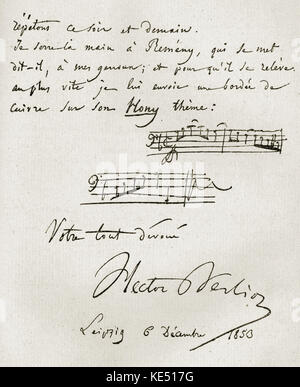 répétons ce soir et demain.
Je serre la main à Remény, qui se met
dit-il, à mes genoux; et pour qu'il se relève
au plus vite je lui envoie une bordée de
cuivre sur son Hony thème:
Votre tout dévoué
Hector Berlioz
Leipzig 6 Décembre 1853
alamy
KE517G